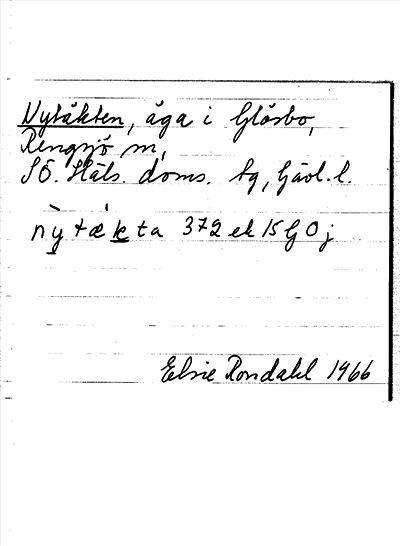 Nytäkten, äga i Glösbo,
Rengsjö sn,
SÖ. Häls. doms. tg, Gävl. l.
nỳtæ´kta 372 ek 15 G O j
Elsie Rondahl 1966